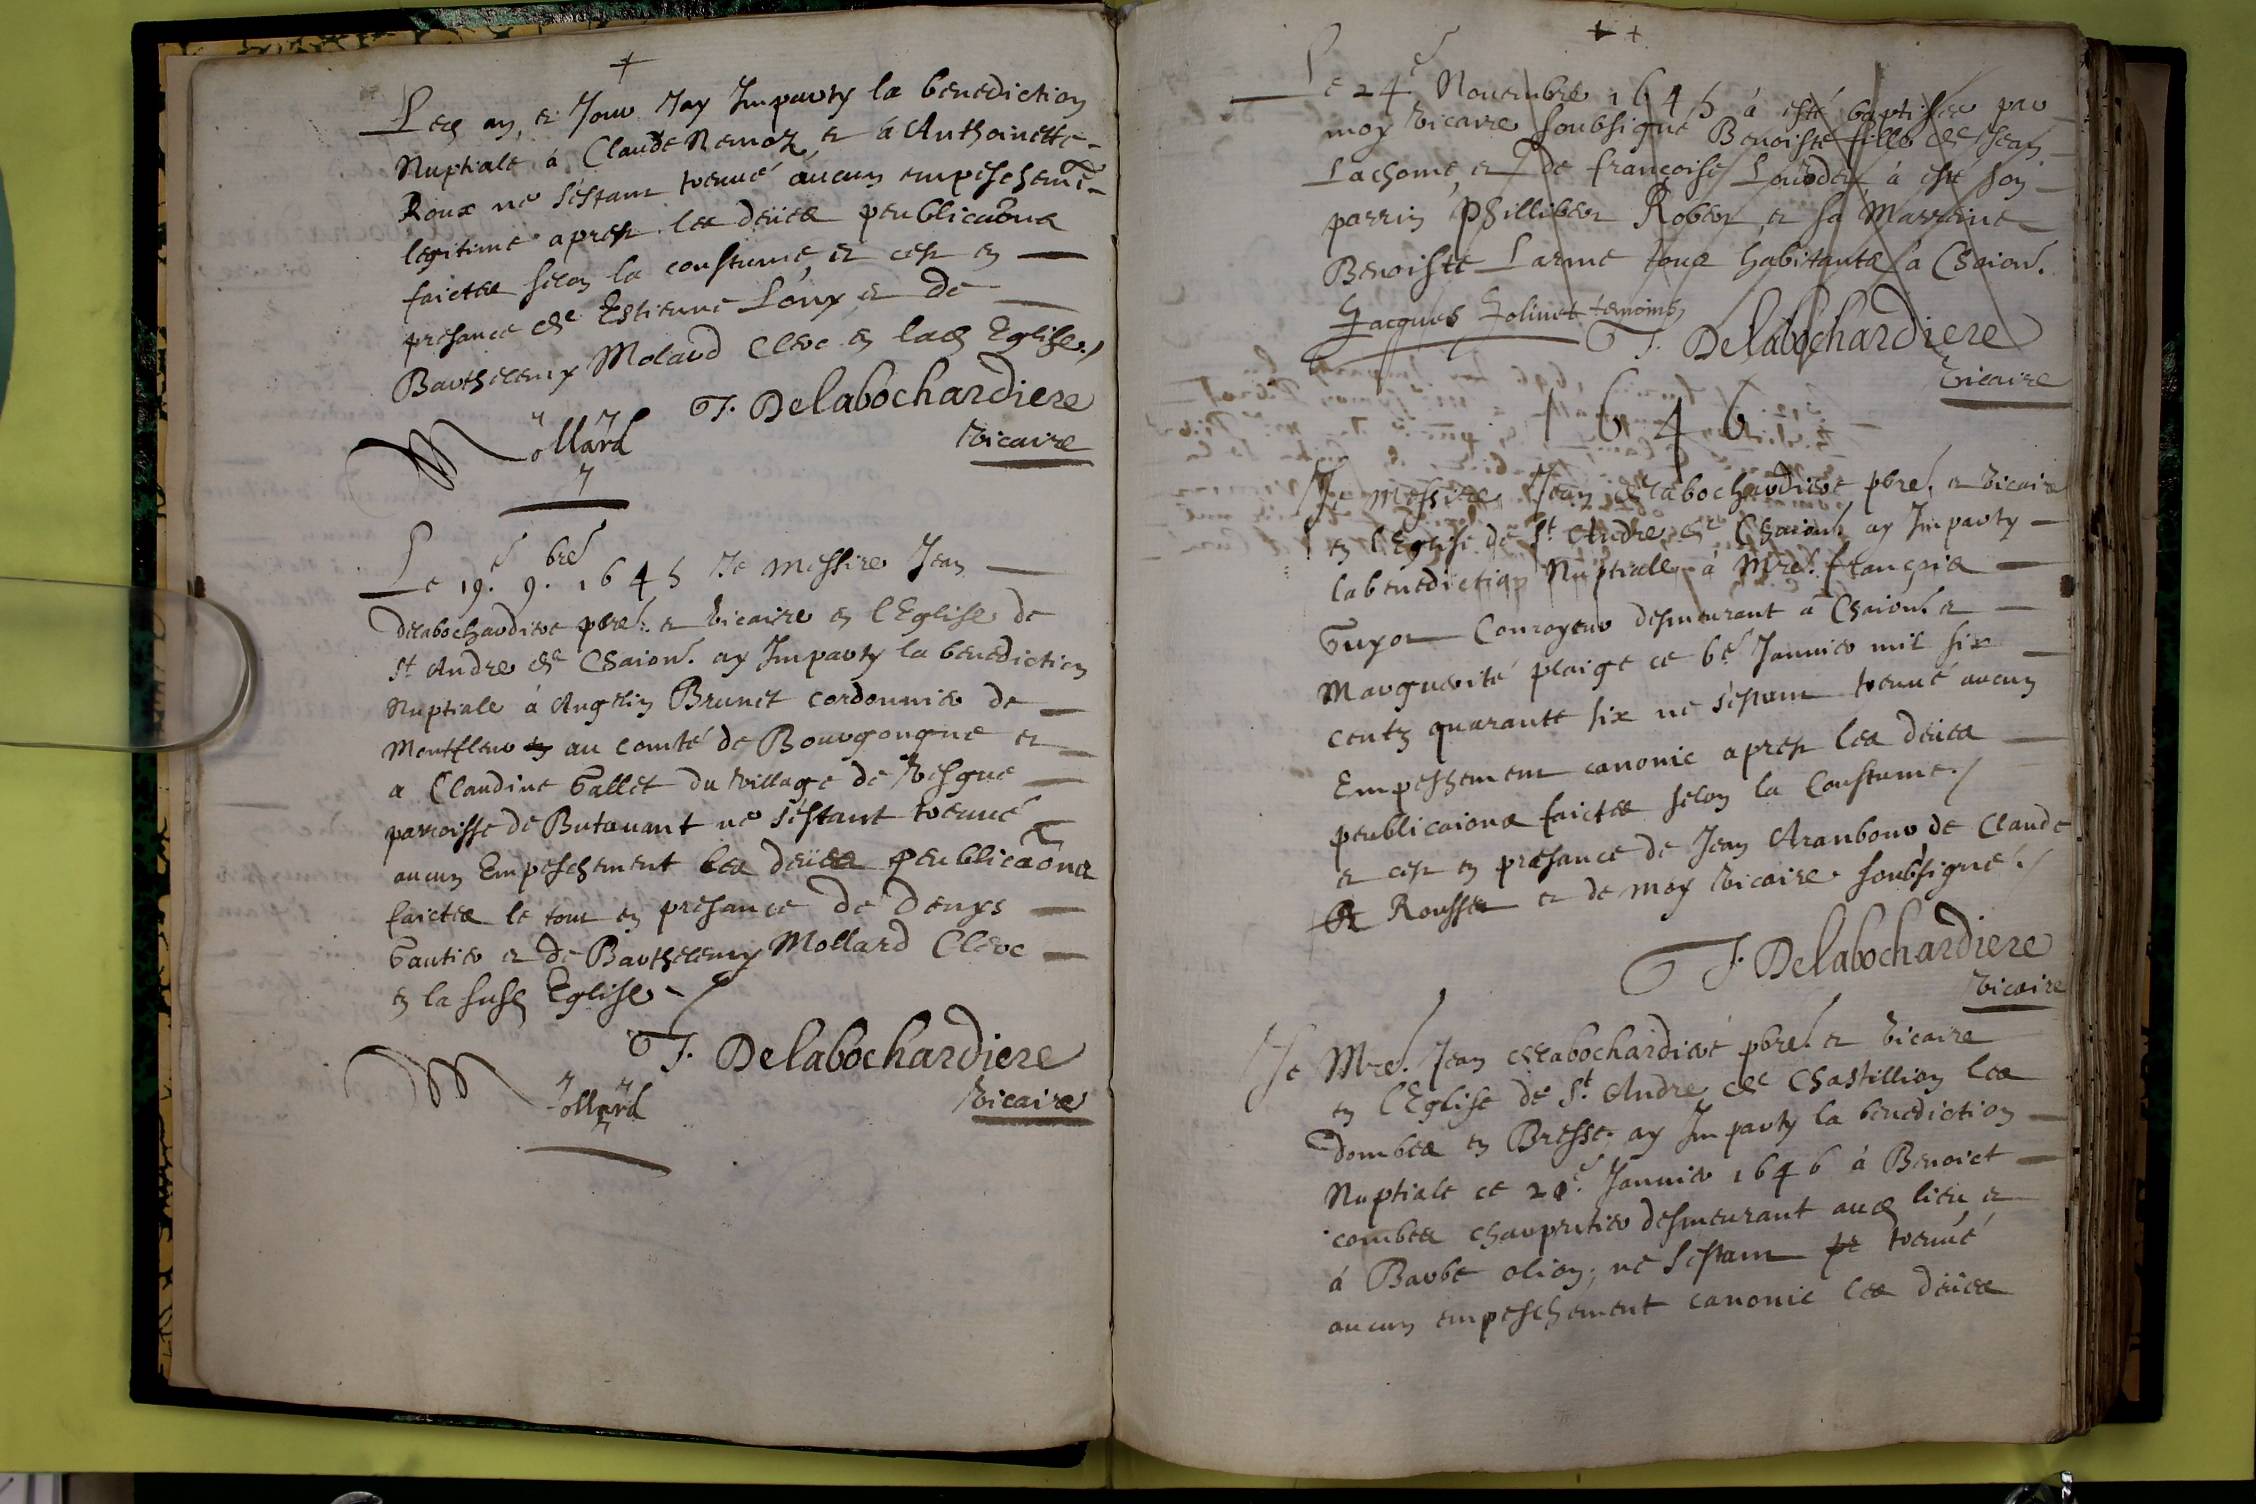 Lesd an, et Jour Jay Imparty la benediction
Nuptiale à Claude Remoz, et à Anthoinette
Roux ne s'estant treuué aucun empeschemēt
legitime apres les deües peublicãons
faictes selon la coustume, et cest en
presance de Estienne Loux, et de
Barthelemy Molard Clerc en lad Eglise./
J. Delabochardiere
Vicaire
Mollard
Le 19.e 9.bre 1645 Je Messire Jean
delabochardiere pbre. et Vicaire en l'Eglise de
St Andre de Chaion. ay Imparty la benediction
Nuptiale à Anglin Brunet cordonnier de
Montfleur au comté de Bourgongne et
a Claudine Gallet du village de Vesgne
parroisse de Butauant ne s'estant treuué
aucun Empeschement les deües peublicãons
faictes le tout en presance de Denys
Gautier et de Barthelemy Mollard Clerc
en la susd Eglise
J. Delabochardiere
Vicaire
Mollard
Le 24e Nouembre 1645 à esté baptisee par
moy Vicaire soubsigné Benoiste fille de Jean
Lachome, et de françoise Louvder, à esté son
parrin Phillibert Rober, et sa Marraine
Benoiste Larme tous habitants à Chaion.
Jacques Jolinet temoins
J. Delabochardiere
Vicaire
1646
Je Messire Jean delabochardiere pbre. et Vicaire
en l'Eglise de St Andre de Chaion. ay Imparty
la benediction Nuptialle à Mre. françois
Guyot Conroyeur desmeurant à Chaion. et
Marguerite plaige ce 6e Januier mil six
cents quarante six ne s'estant treuué aucun
Empeschement canonic apres les deües
peublicaions faictes selon la Coustume./
et cest en presance de Jean Aranbour de Claude
Rousset et de moy Vicaire soubsigné./
J. Delabochardiere
Vicaire
Je Mre. Jean delabochardiere pbre. et Vicaire
en l'Eglise de St Andre de Chastillion les
Dombes en Bresse ay Imparty la benediction
Nuptiale ce 21e. Januier 1646 à Benoict
combes charpentier desmeurant aud lieu, et
à Barbe olion; ne s'estant treuué
aucun empeschement canonic les deües